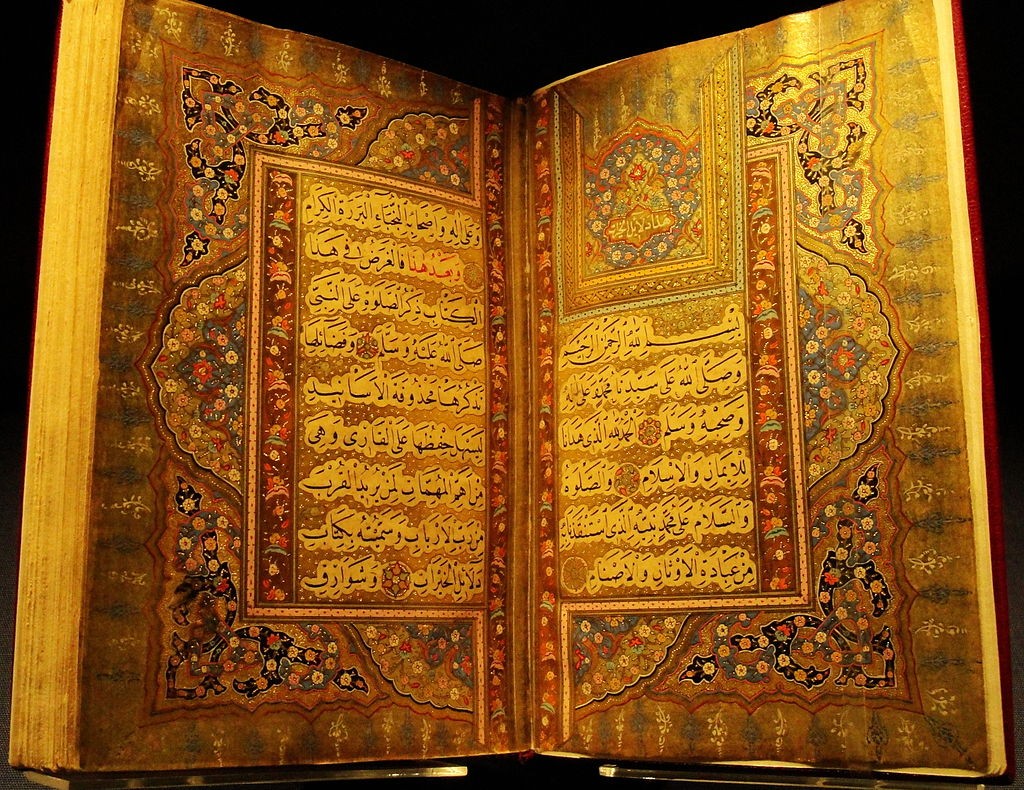 هذا دلائل الخيرات
بِسْمِ اللهِ الرَّحْمٰنِ الرَّحِيمِ
وَصَلَّى اللهُ عَلَى سَيِّدِنَا مُحَمَّدٍ وَعَلَى آلِهِ
وَصَحْبِهِ وَسَلَّمَ الْحَمْدُ لِلّٰهِ الَّذِي هَدَانَا
لِلْإِيمَانِ وَالْإِسْلَامِ وَالصَّلٰوةُ
وَالسَّلَامُ عَلَى مُحَمَّدٍ نَبِيِّهِ الَّذِي اسْتَنْقَذَنَا بِهِ
مِنْ عِبَادَةِ الْأَوْثَانِ وَالْأَصْنَامِ
وَعَلَى آلِهِ وَأَصْحَابِهِ النُّجَبَاءِ الْبَرَرَةِ الْكِرَامِ
وَبَعْدَ هٰذَا فَالْغَرَضُ فِي هٰذَا
الْكِتَابِ ذِكْرُ الصَّلٰوةِ عَلَى النَّبِيِّ
صَلَّى اللهُ عَلَيْهِ وَسَلَّمَ وَفَضَائِلِهَا
نَذْكُرُهَا مَحْذُوفَةَ الْأَسَانِيدِ
لِيَسْهُلَ حِفْظُهَا عَلَى الْقَارِئِ وَهِيَ
مِنْ أَهَمِّ الْمُهِمَّاتِ لِمَنْ يُرِيدُ الْقُرْبَ
مِنْ رَبِّ الْأَرْبَابِ وَسَمَّيْتُهُ بِكِتَابِ
دَلَائِلِ الْخَيْرَاتِ وَشَوَارِقِ